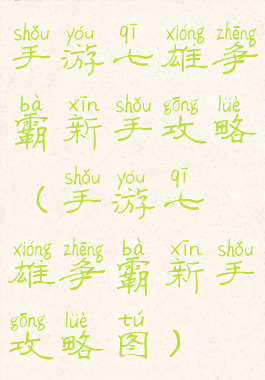 shǒu yóu qī xióng zhēng
手游七雄争
bà xīn shǒu gōng lüè
霸新手攻略
shǒu yóu qī
(手游七
xióng zhēng bà xīn shǒu
雄争霸新手
gōng lüè tú
攻略图)